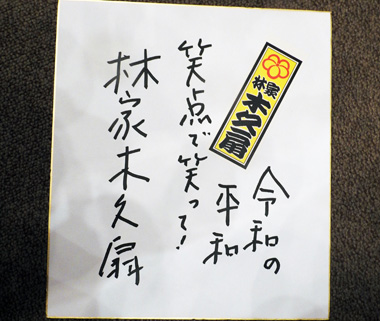 林家木久扇
令和の
平和
笑点で笑って!
林家木久扇